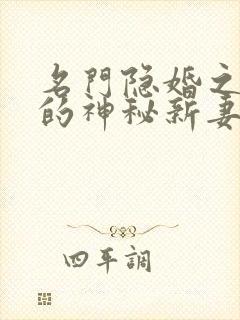 名門隐婚之
的神秘新妻
四平調